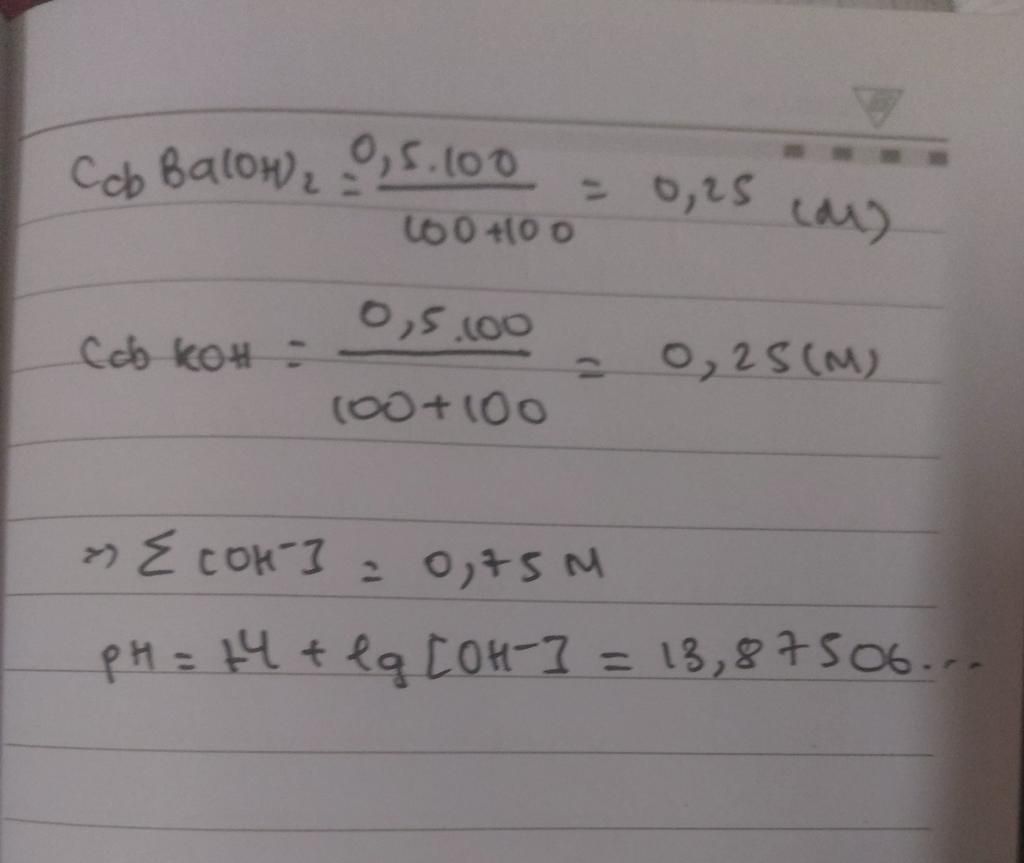 Ccb Ba(OH)2 = 0,5.100 / 100+100 = 0,25 (M)
Ccb KOH = 0,5.100 / 100+100 = 0,25(M)
=> Σ [OH-] = 0,75 M
pH = 14 + lg [OH-] = 13,87506...